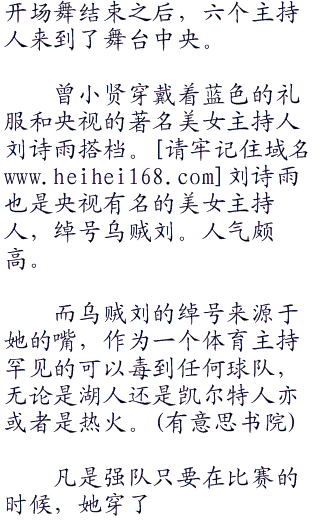 开场舞结束之后，六个主持
人来到了舞台中央。
曾小贤穿戴着蓝色的礼
服和央视的著名美女主持人
刘诗雨搭档。[请牢记住域名
www.heihei168.com]刘诗雨
也是央视有名的美女主持
人，绰号乌贼刘。人气颇
高。
而乌贼刘的绰号来源于
她的嘴，作为一个体育主持
罕见的可以毒到任何球队，
无论是湖人还是凯尔特人亦
或者是热火。(有意思书院)
凡是强队只要在比赛的
时候，她穿了